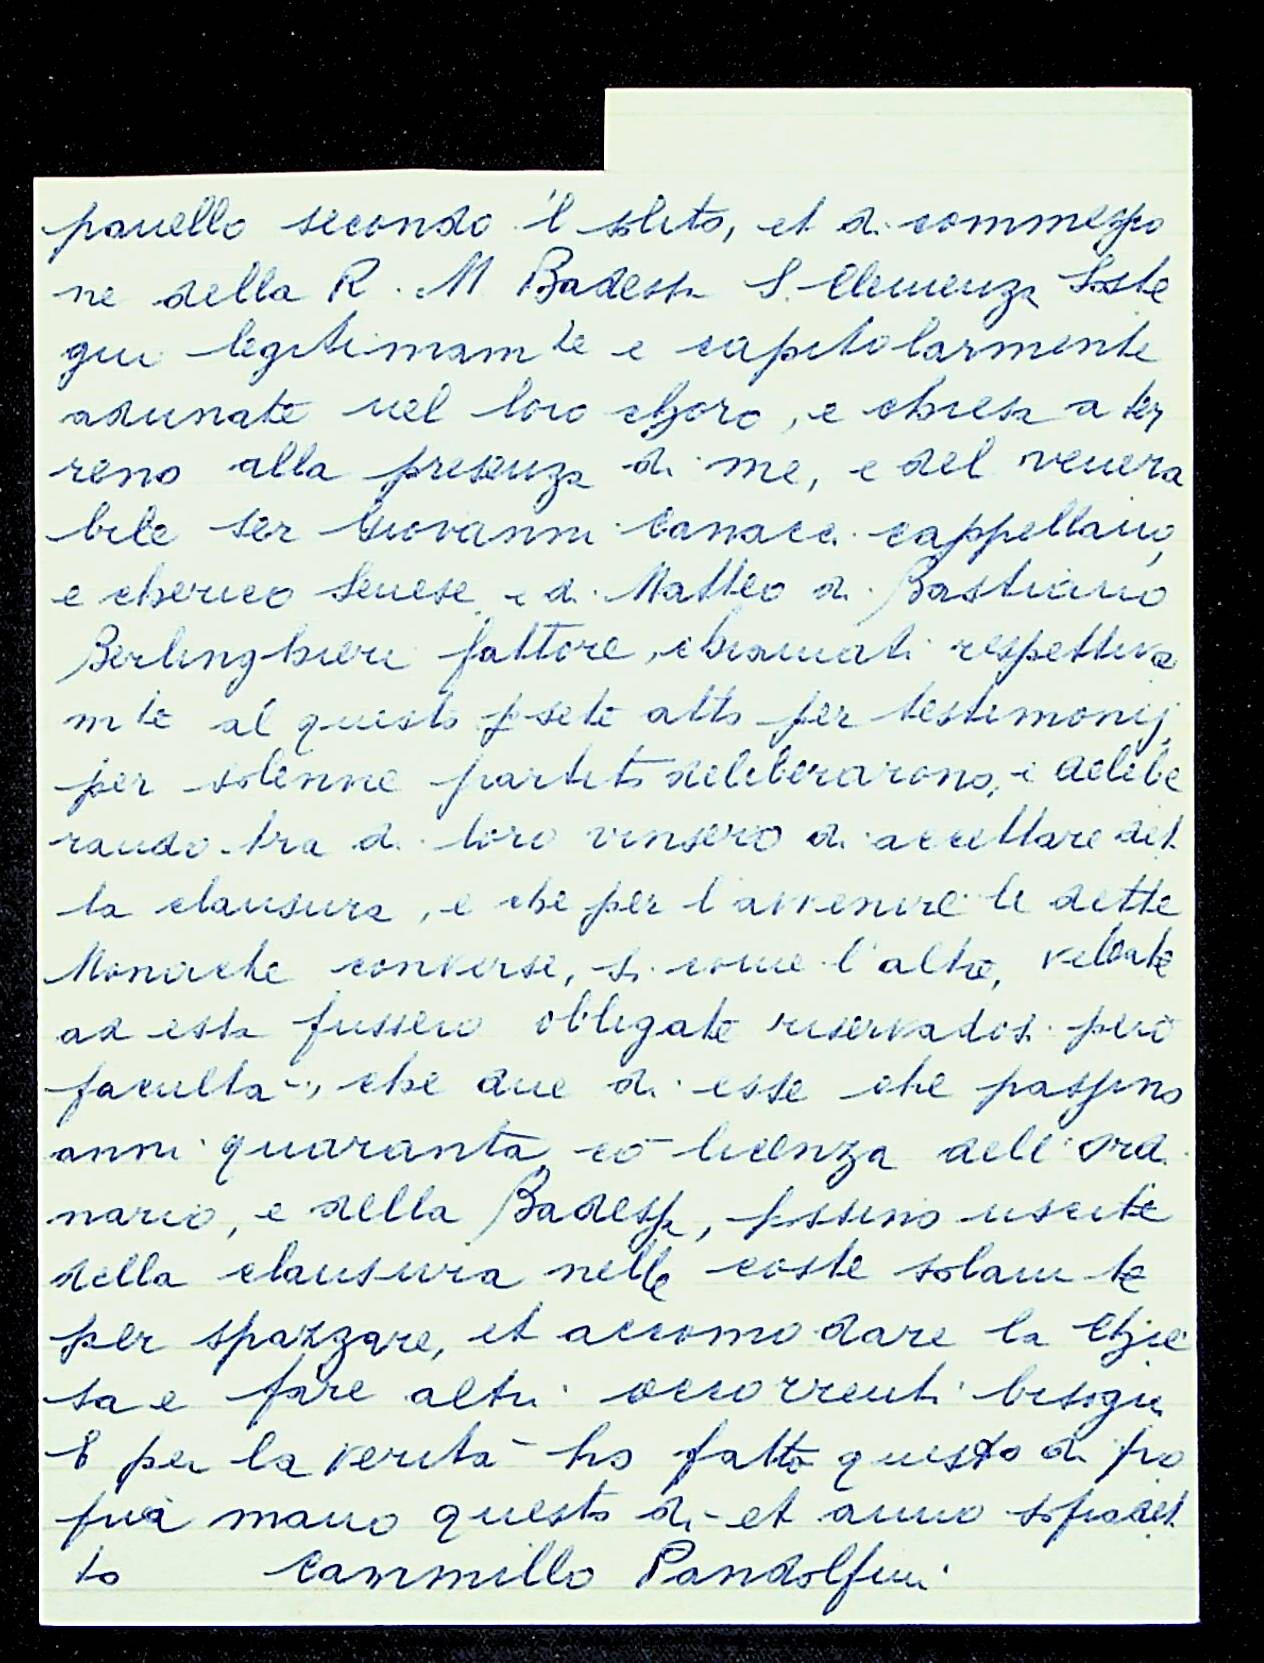 panello secondo 'l solito, et di commessio
ne della R. M Badessa S. Clemenza Soste
gni legitimam te e capitolarmente
adunate nel loro choro, e chiesa a ter
reno alla presenza di me, e del venera
bile ser Giovanni Canacci cappellano,
e cherico Senese, e di Matteo di Bastiano
Berlinghieri fattore, chiamati respettiva
m te al questo psete atto per testimonij,
per solenne partito deliberarono, e delibe
rando tra di loro vinsero di accettare det
ta clausura, e che per l'avvenire le dette
Monache converse, si come l'altre, velate
ad essa fussero obligate riservadosi però
facultà, che due di esse che passino
anni quaranta, cō licenza dell'ordi
nario, e della Badessa, possino uscite
della clausura nelle coste solam te
per spazzare, et accomodare la Chie
sa e fare altri occorrenti bisogni
E per la verità ho fatto questo di pro
pria mano questo dì et anno sopradet
to Cammillo Pandolfini